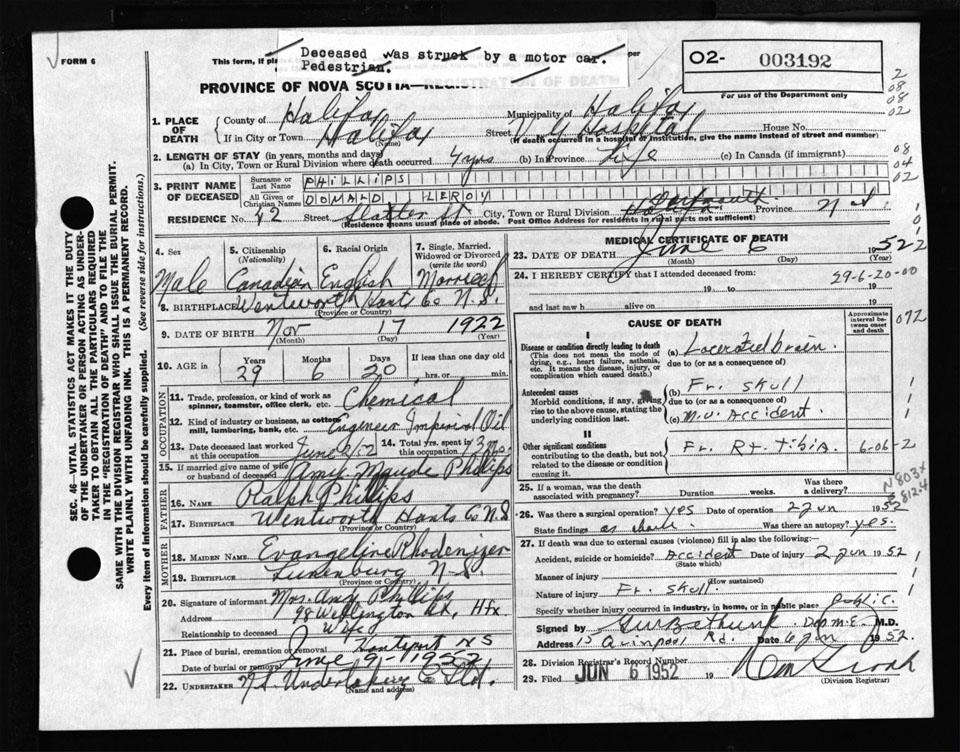 FORM 6
This form, if pl
per
Deceased was struck by a motor car.
Pedestrian.
O2- 003192
For use of the Department only
PROVINCE OF NOVA SCOTIA—REGISTRATION OF DEATH
1. PLACE OF DEATH
County of Halifax
Municipality of Halifax
If in City or Town Halifax (Name)
Street V G Hospital House No.
(If death occurred in a hospital or institution, give the name instead of street and number)
2. LENGTH OF STAY (in years, months and days)
(a) In City, Town or Rural Division where death occurred 4 yrs (b) In Province Life (c) In Canada (if immigrant)
3. PRINT NAME OF DECEASED
Surname or Last Name PHILLIPS
All Given or Christian Names DONALD LEROY
RESIDENCE No. 42 Street Slatter St City, Town or Rural Division Dartmouth Province N S
(Residence means usual place of abode. Post Office Address for residents in rural parts not sufficient)
4. Sex Male
5. Citizenship (Nationality) Canadian
6. Racial Origin English
7. Single, Married, Widowed or Divorced (write the word) Married
8. BIRTHPLACE Wentworth Hants Co N.S.
(Province or Country)
9. DATE OF BIRTH Nov 17 1922
(Month) (Day) (Year)
10. AGE in Years 29 Months 6 Days 20 If less than one day old hrs. or min.
OCCUPATION
11. Trade, profession, or kind of work as spinner, teamster, office clerk, etc. Chemical
12. Kind of industry or business, as cotton mill, lumbering, bank, etc. Engineer Imperial Oil
13. Date deceased last worked at this occupation June 2/52
14. Total yrs. spent in this occupation 3 mos
15. If married give name of wife or husband of deceased Amy Maude Phillips
FATHER
16. NAME Ralph Phillips
17. BIRTHPLACE Wentworth Hants Co N.S
(Province or Country)
MOTHER
18. MAIDEN NAME Evangeline Rhodenizer
19. BIRTHPLACE Lunenburg N-S.
(Province or Country)
20. Signature of informant Mrs. Amy Phillips
Address 98 Wellington Hfx.
Relationship to deceased Wife
21. Place of burial, cremation or removal Hantsport N S
Date of burial or removal June 9 1952
22. UNDERTAKER N.S. Undertaking Co Ltd.
(Name and address)
MEDICAL CERTIFICATE OF DEATH
23. DATE OF DEATH June 6 1952
(Month) (Day) (Year)
24. I HEREBY CERTIFY that I attended deceased from: 29-6-20-00
19 to 19
and last saw h alive on 19
CAUSE OF DEATH
Approximate interval between onset and death
I
Disease or condition directly leading to death (a) Lacerated brain
(This does not mean the mode of dying, e.g., heart failure, asthenia, etc. It means the disease, injury, or complication which caused death.)
due to (or as a consequence of)
Antecedent causes (b) Fr. skull
Morbid conditions, if any, giving rise to the above cause, stating the underlying condition last.
due to (or as a consequence of)
(c) M.V. Accident.
II
Other significant conditions contributing to the death, but not related to the disease or condition causing it.
Fr. Rt. tibia 6-06-2
25. If a woman, was the death associated with pregnancy? Duration weeks. Was there a delivery?
26. Was there a surgical operation? yes Date of operation 2 Jun 1952
State findings as above Was there an autopsy? yes.
27. If death was due to external causes (violence) fill in also the following:
Accident, suicide or homicide? Accident Date of injury 2 Jun 1952
(State which)
Manner of injury
(How sustained)
Nature of injury Fr. skull.
Specify whether injury occurred in industry, in home, or in public place public.
Signed by Dep M.E. M.D.
Address 15 Quinpool Rd. Date 6 Jun 1952.
28. Division Registrar's Record Number
29. Filed JUN 6 1952 19
(Division Registrar)
2
08
08
02
08
04
02
072
N803x
E812.4
SEC. 46—VITAL STATISTICS ACT MAKES IT THE DUTY OF THE UNDERTAKER OR PERSON ACTING AS UNDERTAKER TO OBTAIN ALL THE PARTICULARS REQUIRED IN THE "REGISTRATION OF DEATH" AND TO FILE THE SAME WITH THE DIVISION REGISTRAR WHO SHALL ISSUE THE BURIAL PERMIT.
WRITE PLAINLY WITH UNFADING INK. THIS IS A PERMANENT RECORD.
Every item of information should be carefully supplied. (See reverse side for instructions.)